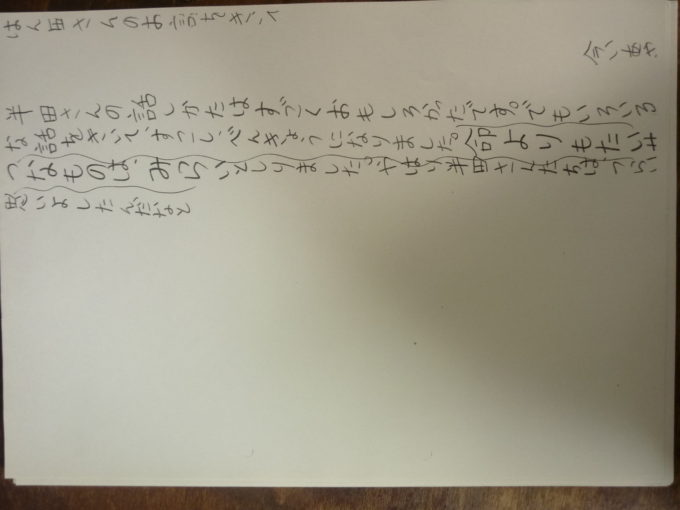 はん田さんのお話をきいて
今い あや
半田さんの話しかたはすごくおもしろかたです。でもいろいろ
な話をきいて、すこし、べんきょうになりました。命よりもたいせ
つなものは、みらいとしりました。やはり半田さんたちは、つらい
思いをしたんだなと